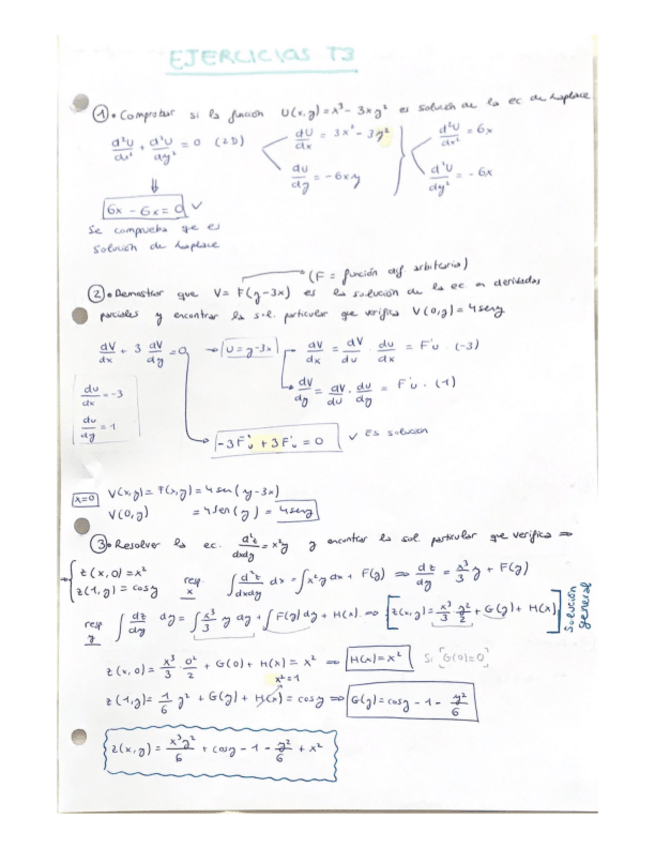 EJERCICIOS T3
① • Comprobar si la función U(x,y) = x³ - 3xy² es solución de la ec de Laplace
d²U/dx² + d²U/dy² = 0 (2D)
dU/dx = 3x² - 3y²
d²U/dx² = 6x
du/dy = -6xy
d²U/dy² = -6x
6x - 6x = 0 ✓
Se comprueba que es
solución de Laplace
(F = función dif arbitraria)
② • Demostrar que V = F(y-3x) es la solución de la ec en derivadas
parciales y encontrar la sol. particular que verifica V(0,y) = 4 sen y
dV/dx + 3 dV/dy = 0 → U = y-3x
dV/dx = dV/du · du/dx = F'u · (-3)
dV/dy = dV/du · du/dy = F'u · (1)
du/dx = -3
du/dy = 1
-3F'u + 3F'u = 0 ✓ Es solución
x=0 V(x,y) = F(x,y) = 4 sen (y-3x)
V(0,y) = 4 sen (y) = 4 sen y
③ • Resolver la ec. d²z/dxdy = x²y y encontrar la sol particular que verifica ⇒
→ { z(x,0) = x²
z(1,y) = cos y
resp. x ∫ d²z/dxdy dx = ∫ x²y dx + F(y) ⇒ dz/dy = x³/3 y + F(y)
resp y ∫ dz/dy dy = ∫ x³/3 y dy + ∫ F(y) dy + H(x) ⇒ [z(x,y) = x³/3 y²/2 + G(y) + H(x)] Solución general
z(x,0) = x³/3 · 0²/2 + G(0) + H(x) = x² ⇒ H(x) = x² Si [G(0)=0]
x²=1
z(1,y) = 1/6 y² + G(y) + H(x) = cos y ⇒ G(y) = cos y - 1 - y²/6
z(x,y) = x³y²/6 + cos y - 1 - y²/6 + x²